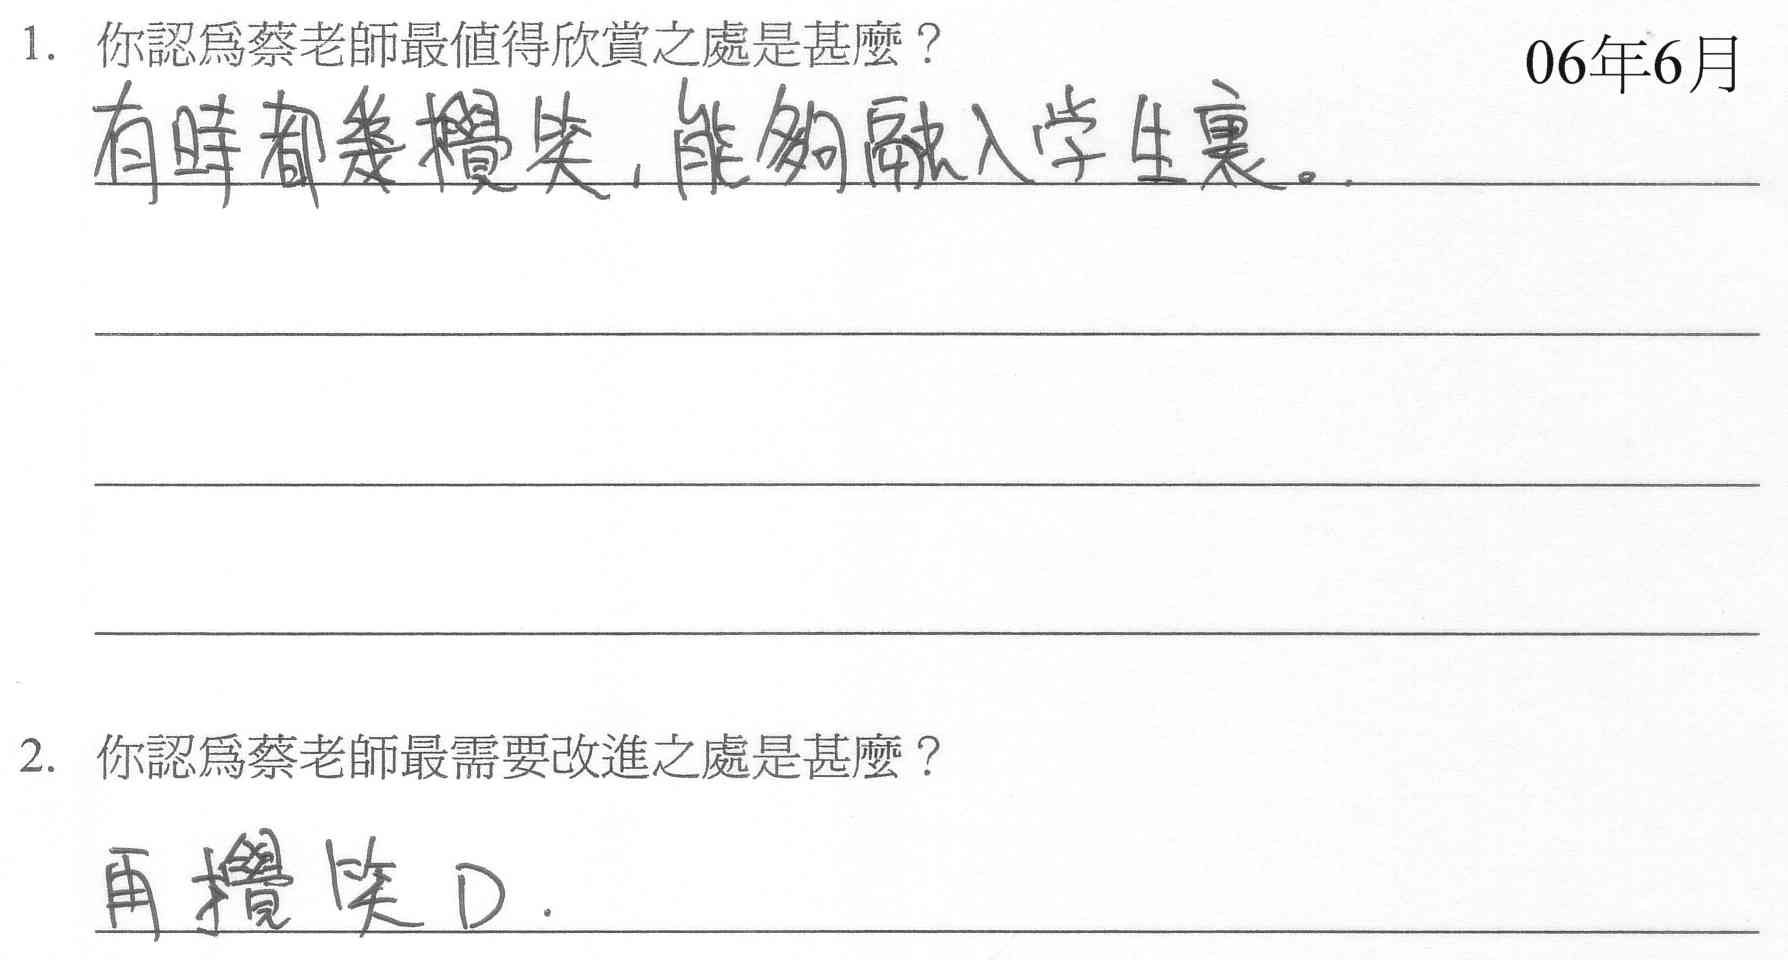 1. 你認爲蔡老師最值得欣賞之處是甚麼？
06年6月
有時都幾攪笑，能夠融入学生裏。
2. 你認爲蔡老師最需要改進之處是甚麼？
再攪笑D.